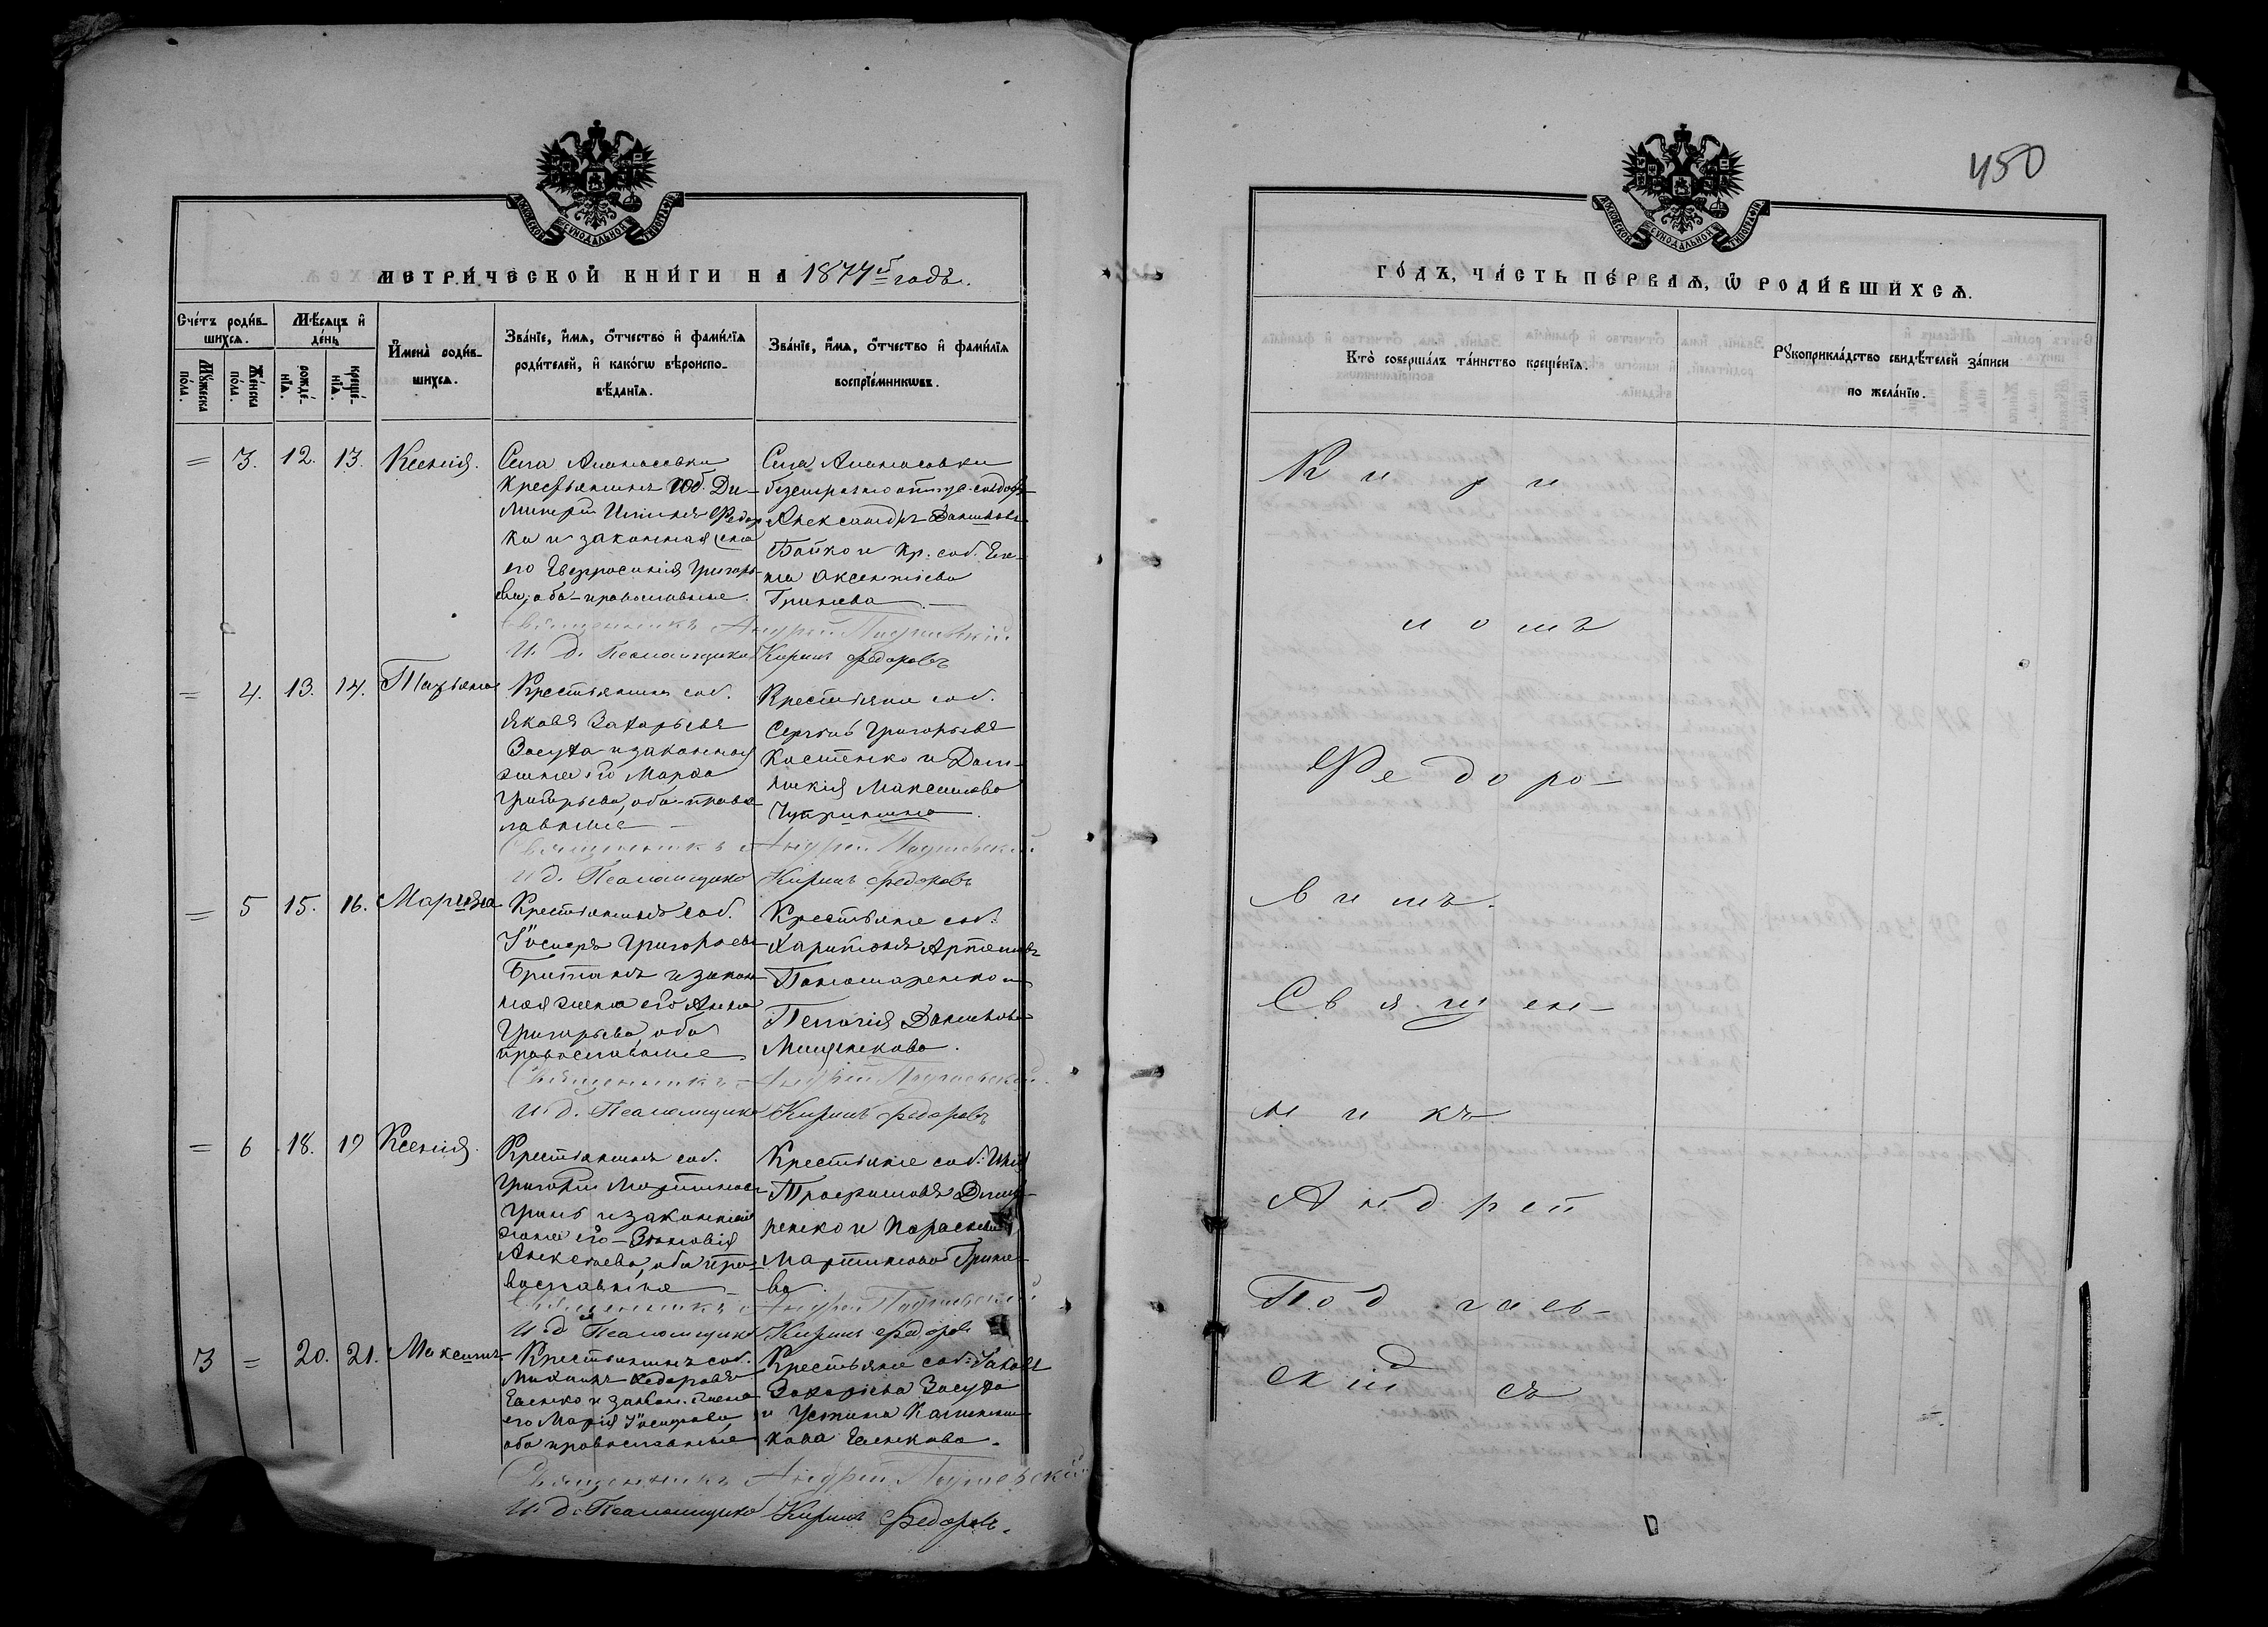 450
МОСКОВСКОЙ СѴНОДАЛЬНОЙ ТИПОГРАФІИ
МЕТРИ́ЧЕСКОЙ КНИ́ГИ НА 1874й годъ.
Сче́тъ роди́в-
шихсѧ.
Мѣ́сѧцъ и҆
де́нь
Мꙋ́жеска по́ла.
Же́нска по́ла.
рожде́-
нїѧ.
креще́-
нїѧ.
И҆мена̀ роди́в-
шихсѧ.
Зва́нїе, и҆́мѧ, ѻ҆́тчество и҆ фамѝлїѧ
роди́телей, и҆ како́гѡ вѣроиспо-
вѣ́данїѧ.
Зва́нїе, и҆́мѧ, ѻ҆́тчество и҆ фамѝлїѧ
воспрїе́мникѡвъ.
= 3. 12. 13. Ксенія.
Села Ананьевки
крестьянинъ соб. Ди-
митрій
ко и законная жена
его Евфросинія Григорь-
ева, оба православные.
Села Ананьевки
безсрочно отпус. солдатъ
Александръ Даниловъ
Бойко и кр. соб. Еле-
на Аксентіева
Гринева
Священникъ Андрей Подгаевскій
И. д. Псаломщика Кирилъ Федоровъ
= 4. 13. 14. Татьяна
Крестьянинъ соб.
Яковъ Захарьевъ
Засуха и законная
жена его Марфа
Григорьева, оба право-
лавные
Крестьяне соб.
Сергѣй Григорьевъ
Костенко и Дом-
никія Максимова
Чуприна
Священникъ Андрей Подгаевскій
И. д. Псаломщика Кирилъ Федоровъ
= 5 15. 16. Марина
Крестьянинъ соб.
Іосифъ Григорьевъ
Британъ и закон-
ная жена его Анна
Григорьева, оба
православные
Крестьяне соб.
Харитонъ Артемовъ
Пономаренко и
Пелагія Данилова
Мищенкова.
Священникъ Андрей Подгаевскій
И. д. Псаломщика Кирилъ Федоровъ
= 6 18. 19 Ксенія.
Крестьянинъ соб.
Григорій Мартиновъ
Гринь и законная
жена его Зиновія
Алексѣева, оба пра-
вославные
Крестьяне соб.
Трофимовъ
ренко и Параскевія
Мартинова Грине-
ва.
Священникъ Андрей Подгаевскій
И. д. Псаломщика Кирилъ Федоровъ
3 = 20. 21. Максимъ
Крестьянинъ соб.
Михаилъ Федоровъ
и закон. жена
его Марія Іосифова,
оба православные
Крестьяне соб. Яковъ
Захарьевъ Засуха
и Устина
кова
Священникъ Андрей Подгаевскій
И. д. Псаломщика Кирилъ Федоровъ.
МОСКОВСКОЙ СѴНОДАЛЬНОЙ ТИПОГРАФІИ
ГО́ДЪ, ЧА́СТЬ ПЕ́РВАѦ, Ѽ РОДИ́ВШИХСѦ.
Кто̀ соверша́лъ та́инство креще́нїѧ.
Рꙋкоприкла́дство свидѣ́телей за́писи
по жела́нїю.
Ки ри
ломъ
Фе до ро-
вимъ.
Свя щен-
никъ
Андрей
Под гаев-
скій съ